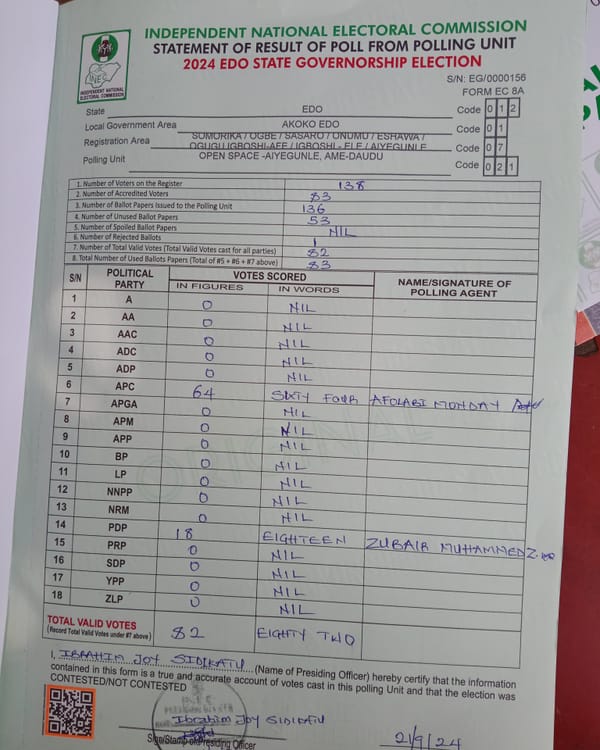 INDEPENDENT NATIONAL ELECTORAL COMMISSION
STATEMENT OF RESULT OF POLL FROM POLLING UNIT
2024 EDO STATE GOVERNORSHIP ELECTION
INEC
INDEPENDENT NATIONAL ELECTORAL COMMISSION
S/N: EG/0000156
FORM EC 8A
State EDO Code 0 1 2
Local Government Area AKOKO EDO Code 0 1
Registration Area SOMORIKA / OGBE / SASARO / ONUMU / ESHAWA / OGUGU IGBOSHI-AFE / IGBOSHI - ELE / AIYEGUNLE Code 0 7
Polling Unit OPEN SPACE -AIYEGUNLE, AME-DAUDU Code 0 2 1
1. Number of Voters on the Register 138
2. Number of Accredited Voters 83
3. Number of Ballot Papers Issued to the Polling Unit 136
4. Number of Unused Ballot Papers 53
5. Number of Spoiled Ballot Papers NIL
6. Number of Rejected Ballots 1
7. Number of Total Valid Votes (Total Valid Votes cast for all parties) 82
8. Total Number of Used Ballots Papers (Total of #5 + #6 + #7 above) 83
S/N POLITICAL PARTY VOTES SCORED NAME/SIGNATURE OF POLLING AGENT
IN FIGURES IN WORDS
1 A 0 NIL
2 AA 0 NIL
3 AAC 0 NIL
4 ADC 0 NIL
5 ADP 0 NIL
6 APC 64 SIXTY FOUR AFOLABI MONDAY
7 APGA 0 NIL
8 APM 0 NIL
9 APP 0 NIL
10 BP 0 NIL
11 LP 0 NIL
12 NNPP 0 NIL
13 NRM 0 NIL
14 PDP 18 EIGHTEEN ZUBAIR MUHAMMED
15 PRP 0 NIL
16 SDP 0 NIL
17 YPP 0 NIL
18 ZLP 0 NIL
TOTAL VALID VOTES
(Record Total Valid Votes under #7 above) 82 EIGHTY TWO
I, IBRAHIM JOY SIDIKATU (Name of Presiding Officer) hereby certify that the information
contained in this form is a true and accurate account of votes cast in this polling Unit and that the election was
CONTESTED/NOT CONTESTED
Ibrahim Joy Sidikatu
Sign/Stamp of Presiding Officer
21/9/24